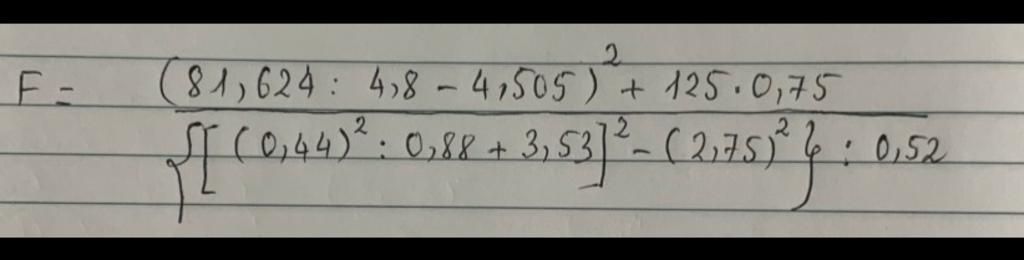 F = (81,624 : 4,8 - 4,505)² + 125.0,75
{[(0,44)² : 0,88 + 3,53]² - (2,75)²} : 0,52